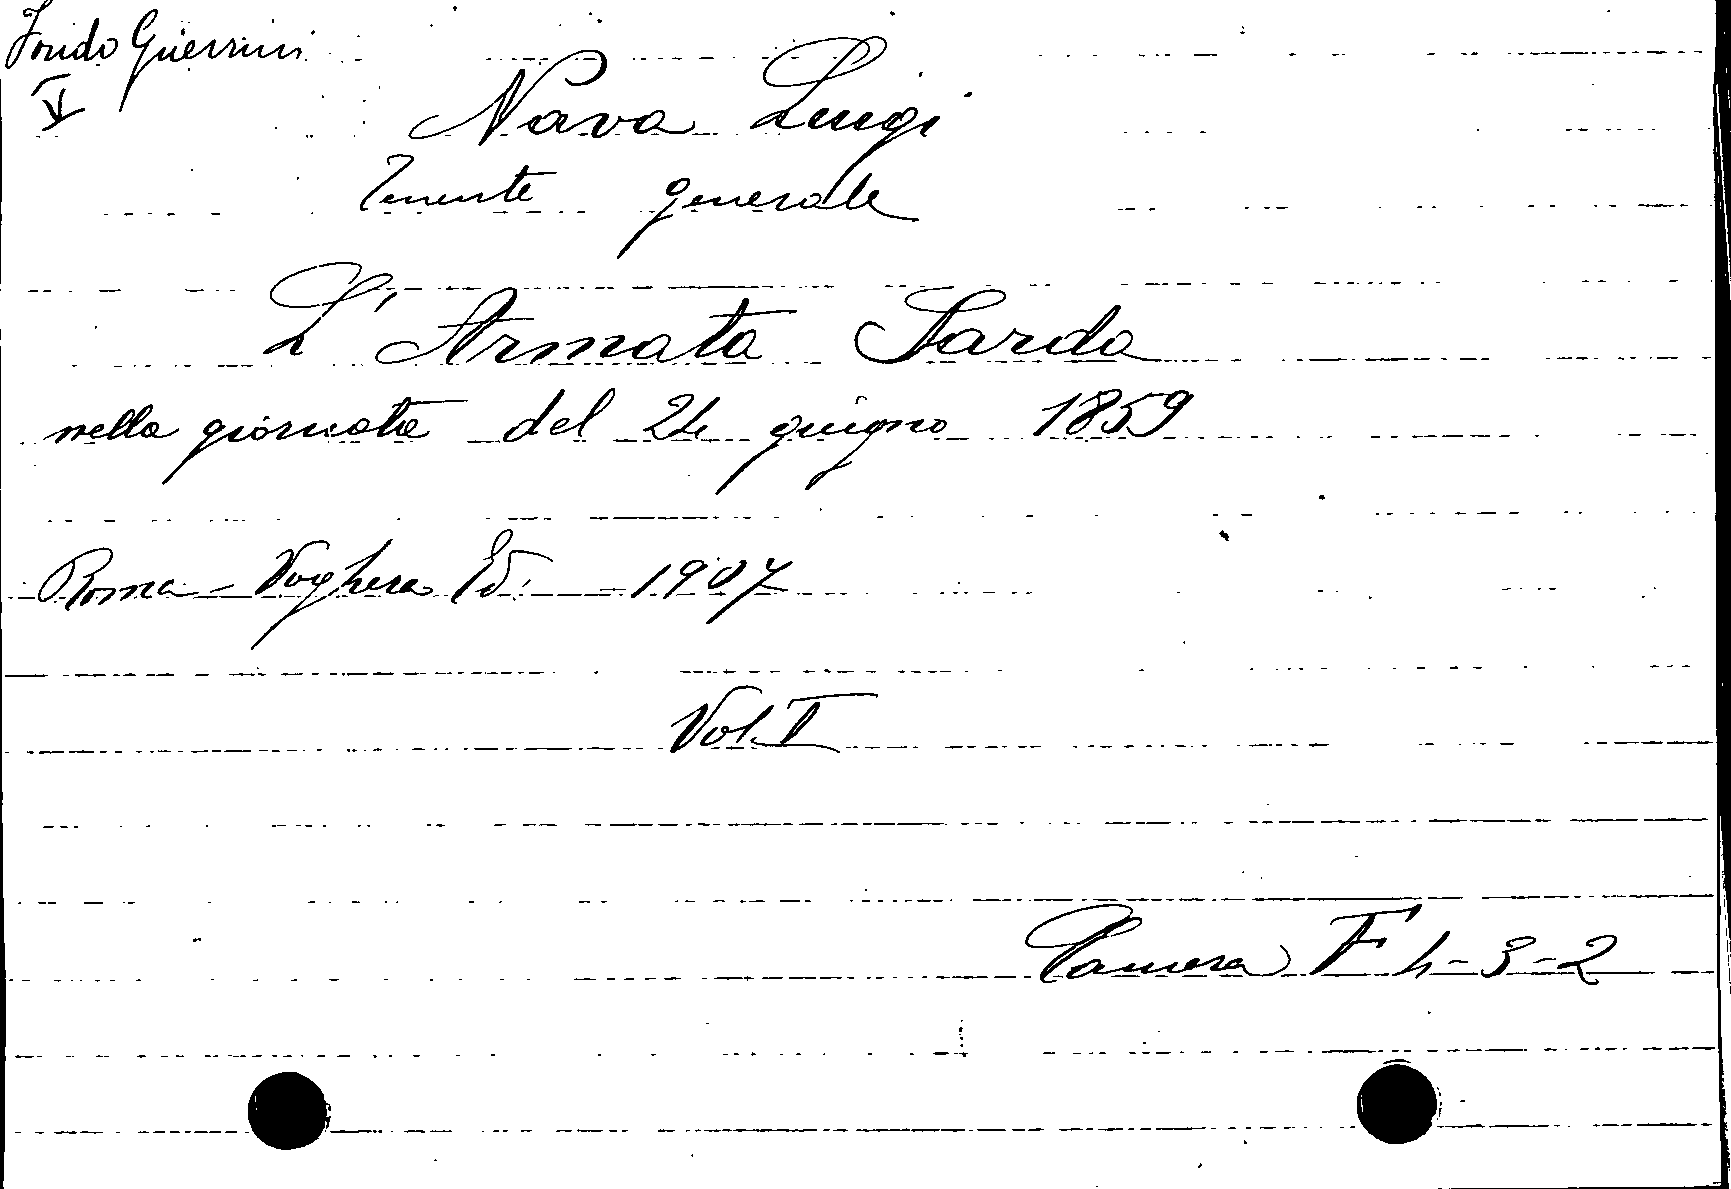 Fondo Guerrini
V
Nava Luigi
Tenente generale
L'Armata Sarda
nella giornata del 24 giugno 1859
Roma - Voghera Ed. - 1907
Vol. I
Camera F 4-3-2